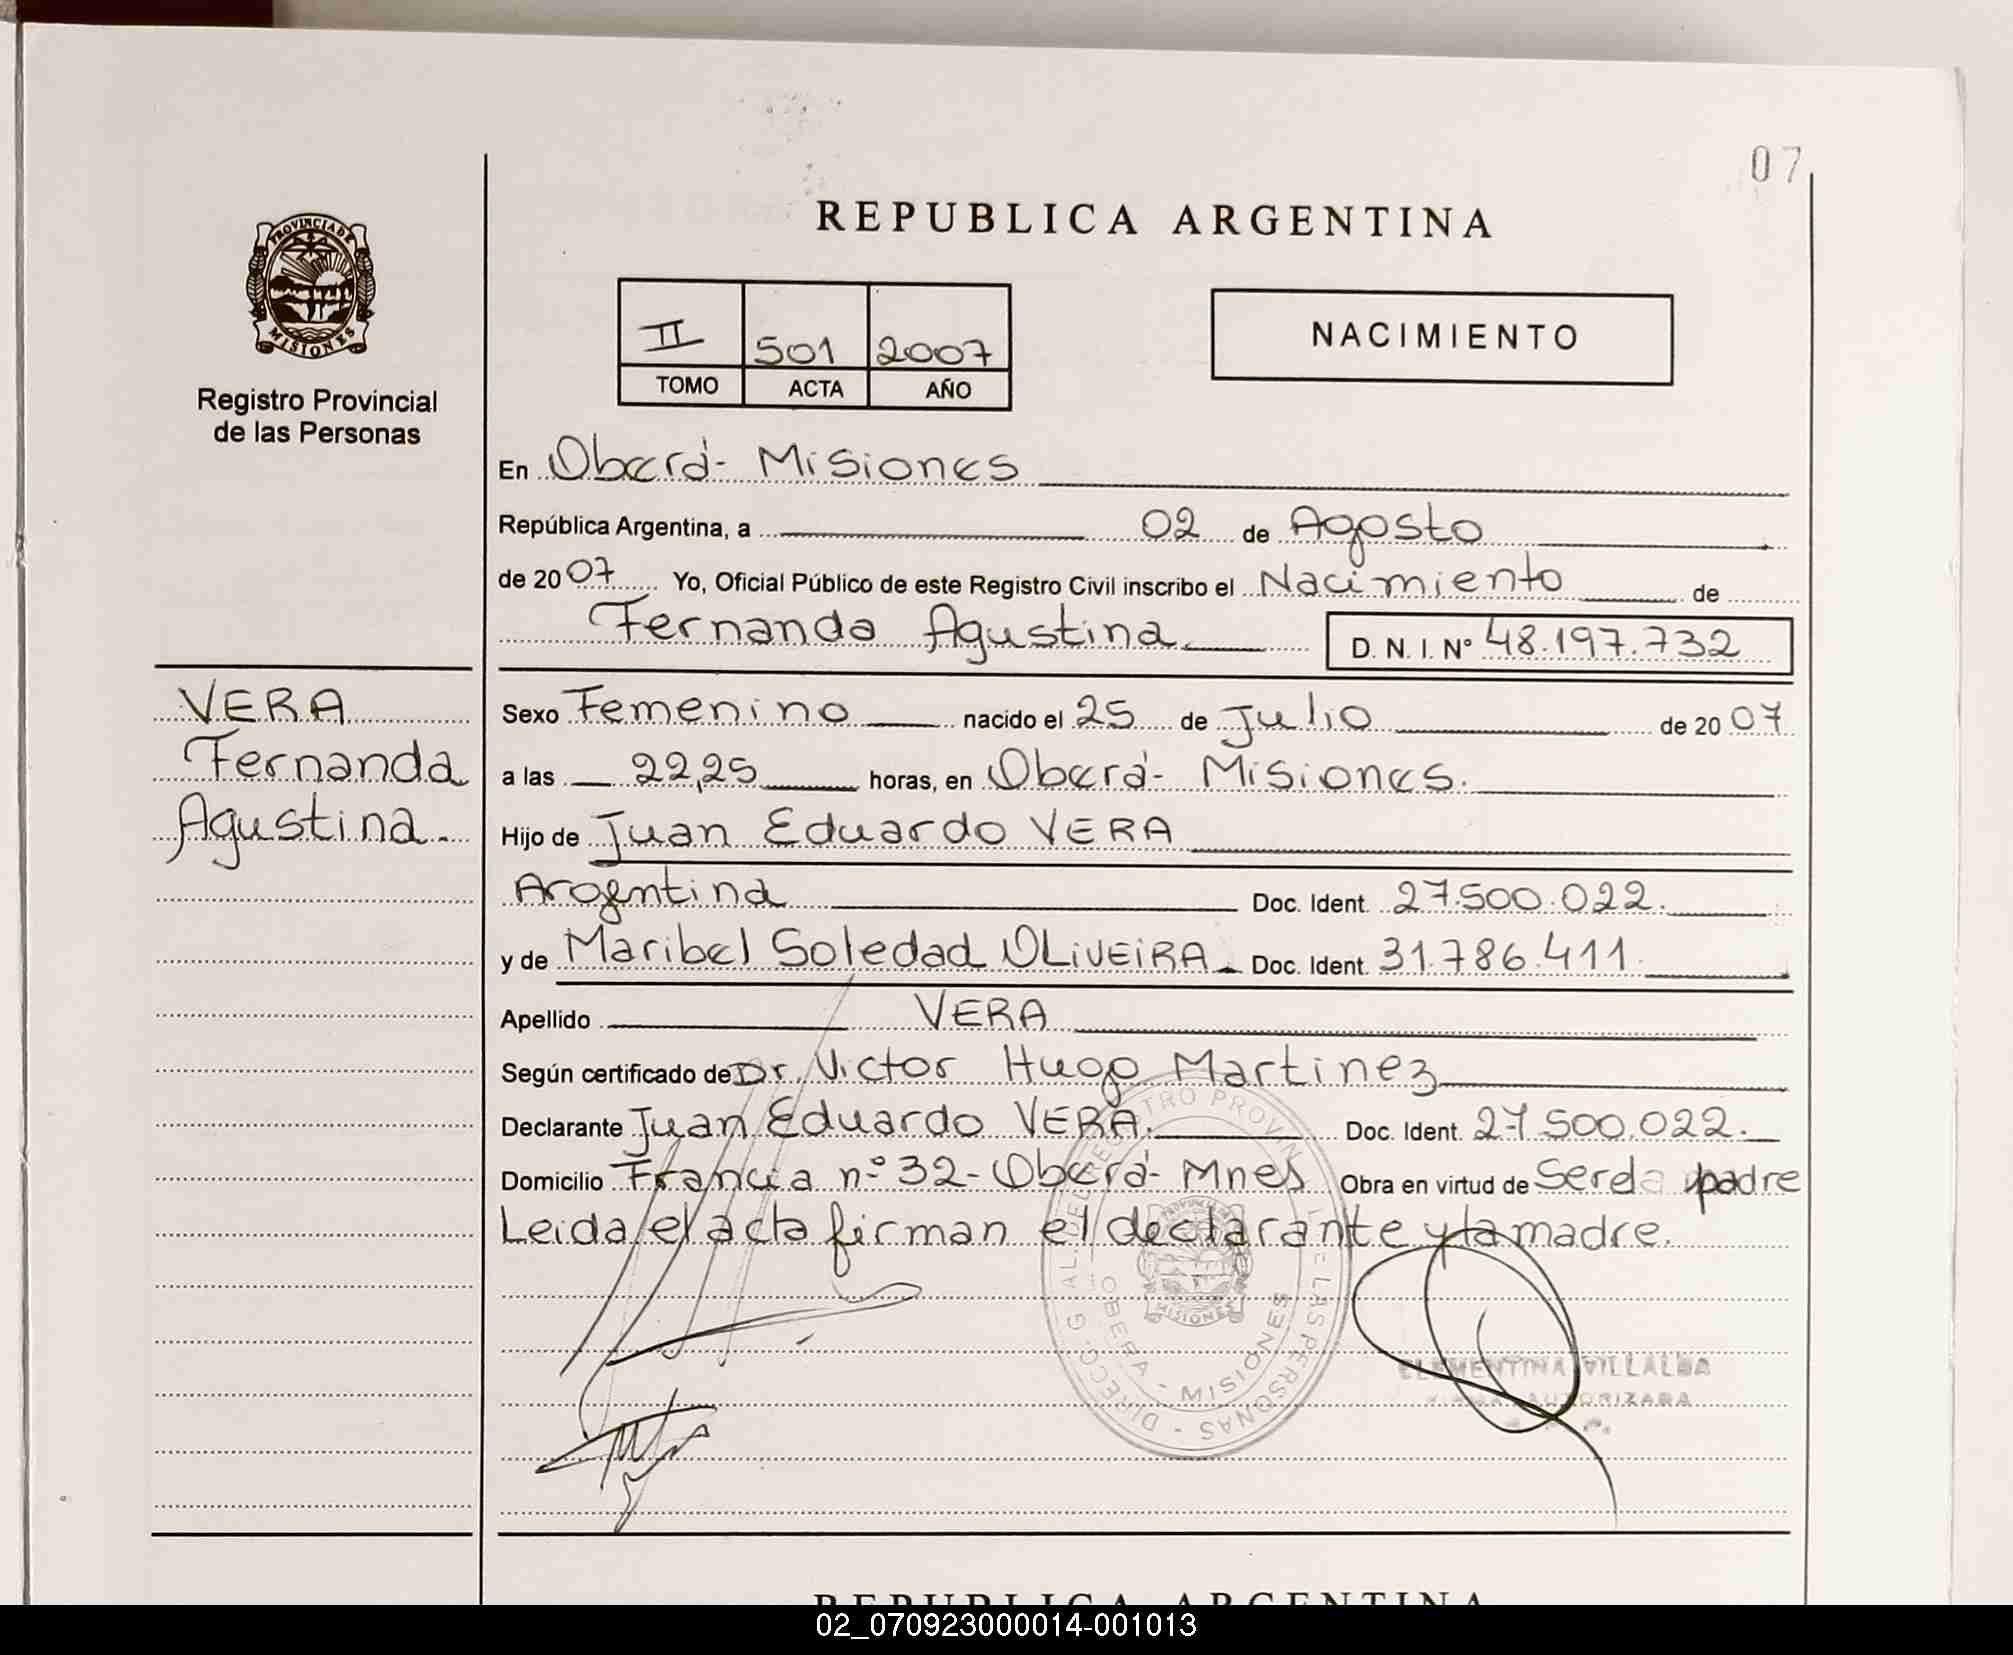 07
PROVINCIA DE
MISIONES
Registro Provincial
de las Personas
REPUBLICA ARGENTINA
II 501 2007
TOMO ACTA AÑO
NACIMIENTO
En Oberá - Misiones
República Argentina, a 02 de Agosto
de 2007 Yo, Oficial Público de este Registro Civil inscribo el Nacimiento de
Fernanda Agustina D. N. I. Nº 48.197.732
VERA
Fernanda
Agustina.
Sexo Femenino nacido el 25 de Julio de 2007
a las 22,25 horas, en Oberá - Misiones.
Hijo de Juan Eduardo VERA
Argentina Doc. Ident. 27.500.022.
y de Maribel Soledad OLIVEIRA Doc. Ident. 31.786.411.
Apellido VERA
Según certificado de Dr. Victor Hugo Martinez
Declarante Juan Eduardo VERA. Doc. Ident. 27.500.022.
Domicilio Francia nº 32 - Oberá - Mnes Obra en virtud de Ser el padre
Leida el acta firman el declarante y la madre.
OBERA - MISIONES
MISIONES
CLEMENTINA VILLALBA
AUTORIZADA
REPUBLICA ARGENTINA
02_070923000014-001013